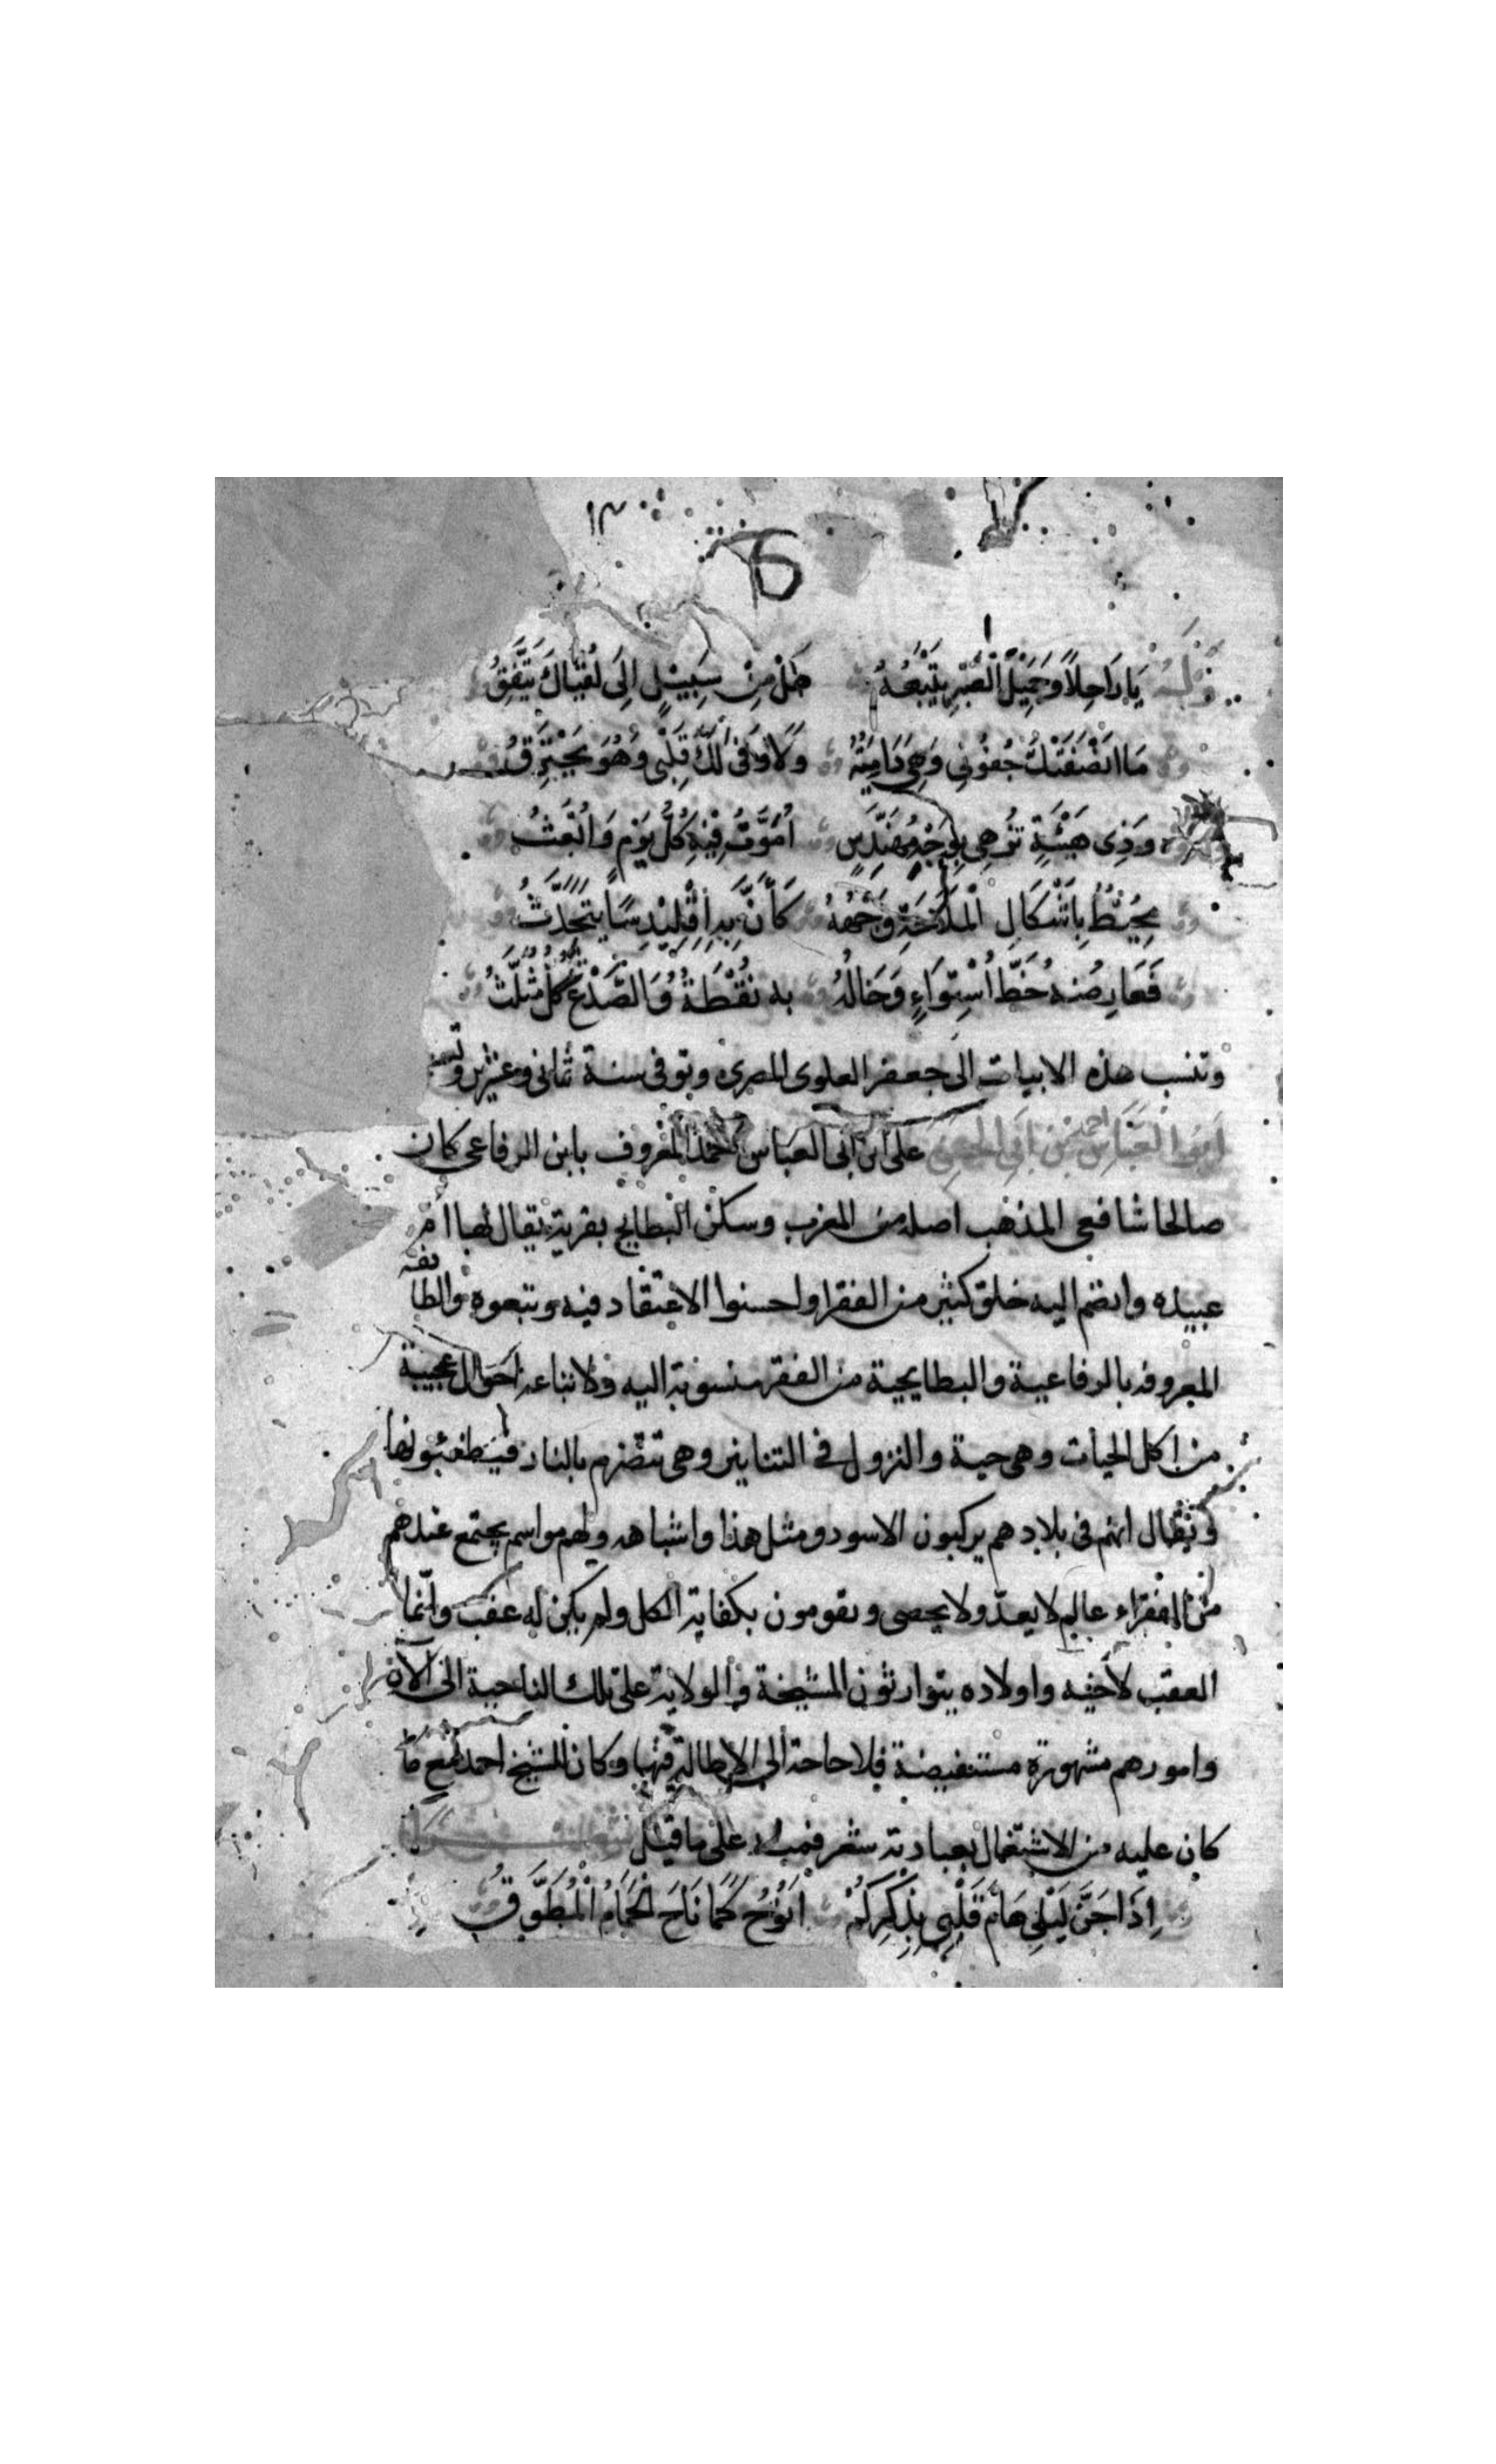 ١٣
6
وله يَا رَاحِلاً وَجَمِيْلُ الصَّبْرِ يَتْبَعُهُ هَلْ مِنْ سَبِيْلٍ اِلَى لُقْيَاكَ يَتَّفِقُ
مَا اَنْصَفَتْكَ جُفُونِي وَهِيَ دَامِيَةٌ وَلَا وَفَى لَكَ قَلْبِي وَهُوَ يَحْتَرِقُ
وَذِى هَيْئَةٍ تُزْهِى بِوَجْهٍ مُهَنْدَسٍ اَمُوْتُ بِهِ كُلَّ يَوْمٍ وَاُبْعَثُ
مُحِيْطٌ بِاَشْكَالِ الْمَلَاحَةِ وَجْهُهُ كَأَنَّ بِهِ اِقْلِيْدِسًا يَتَحَدَّثُ
فَعَارِضُهُ خَطُّ اسْتِوَاءٍ وَخَالُهُ به نُقْطَةٌ وَالصُّدْغُ كُلٌّ مُثَلَّثُ
وتنسب هذه الابيات الى جعفر العلوى المصرى وتوفى سنة ثمانى وعشرين
اَبُو الْعَبَّاسِ احمد بن اَبِي الحسن على ابن ابى العباس احمد المعروف بابن الرفاعى كان
صالحا شافعى المذهب اصله من المغرب وسكن البطايح بقرية يقال لها ام
عبيده وانضم اليه خلق كثير من الفقرا واحسنوا الاعتقاد فيه وتبعوه والطائفة
المعروفه بالرفاعية والبطايحية من الفقرا منسوبة اليه ولاتباعه احوال عجيبة
من اكل الحيات وهى حية والنزول فى التنانير وهى تتضرم بالنار فيطفئونها
ويقال انهم فى بلادهم يركبون الاسود ومثل هذا واشباهه ولهم مواسم يجتمع عندهم
من الفقراء عالم لا يعدّ ولا يحصى ويقومون بكفاية الكل ولم يكن له عقب وانّما
العقب لأخيه واولاده يتوارثون المشيخة والولاية على تلك الناحية الى الآن
وامورهم مشهورة مستفيضة فلا حاجة الى الاطالة فيها وكان الشيخ احمد مع ما
كان عليه من الاشتغال بعبادته شعر فمنه على ما قيل
اِذَا جَنَّ لَيْلِي هَامَ قَلْبِي بِذِكْرِكُمْ اَنُوْحُ كَمَا نَاحَ الْحَمَامُ الْمُطَوَّقُ